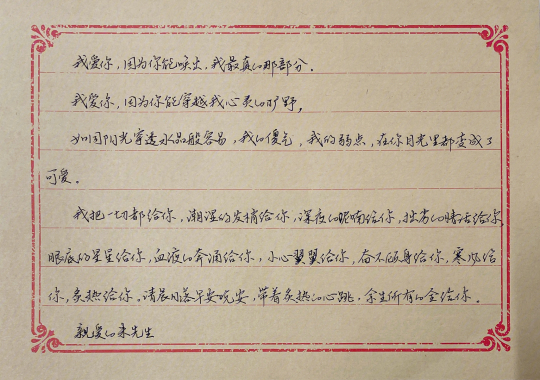 我爱你，因为你能唤出，我最真的那部分.
我爱你，因为你能穿越我心灵的旷野，
如同阳光穿透水晶般容易，我的傻气，我的弱点，在你目光里都变成了
可爱。
我把一切都给你，潮湿的发梢给你，深夜的呢喃给你，拙劣的情话给你
眼底的星星给你，血液的奔涌给你，小心翼翼给你，奋不顾身给你，寒风给
你，炙热给你。清晨日暮早安晚安，带着炙热的心跳，余生所有的全给你。
亲爱的朱先生